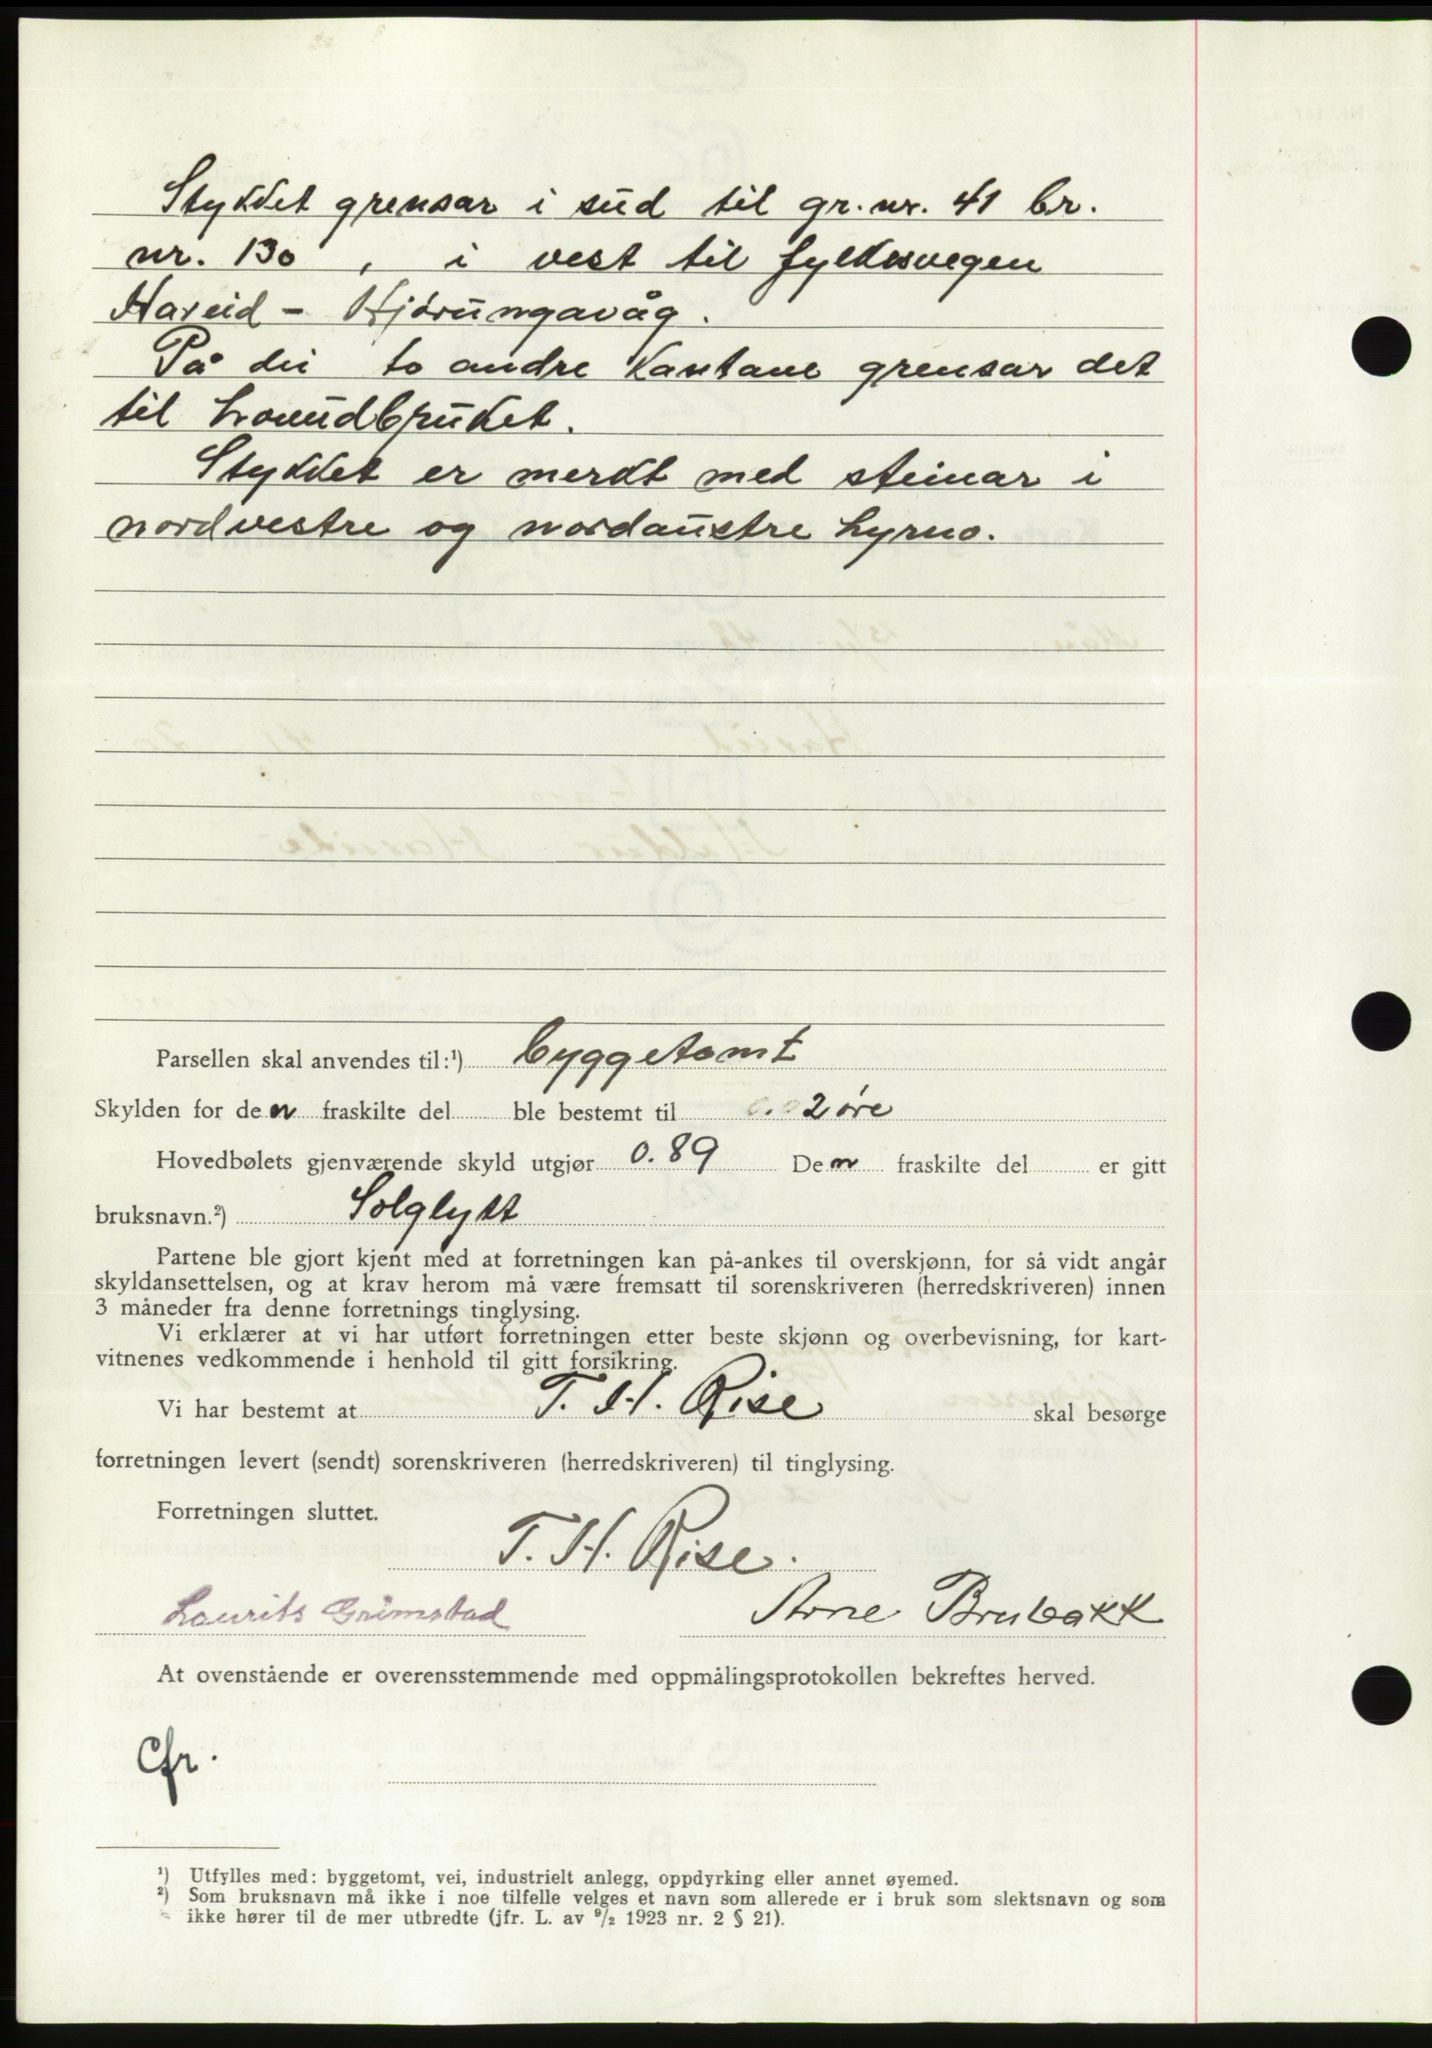 Stykket grensar i süd til gr. nr. 41 br.
nr. 130, i vest til fylkesvegen
Hareid - Hjørüngavåg.
På dei to andre kantane grensar det
til hovudbrüket.
Stykket er merkt med steinar i
nordvestre og nordaüstre hyrno.
Parsellen skal anvendes til:¹) byggetomt
Skylden for den fraskilte del ble bestemt til 0.02 øre
Hovedbølets gjenværende skyld utgjør 0.89 Den fraskilte del er gitt
bruksnavn.²) Solglytt
Partene ble gjort kjent med at forretningen kan på-ankes til overskjønn, for så vidt angår
skyldansettelsen, og at krav herom må være fremsatt til sorenskriveren (herredskriveren) innen
3 måneder fra denne forretnings tinglysing.
Vi erklærer at vi har utført forretningen etter beste skjønn og overbevisning, for kart-
vitnenes vedkommende i henhold til gitt forsikring.
Vi har bestemt at T. H. Rise skal besørge
forretningen levert (sendt) sorenskriveren (herredskriveren) til tinglysing.
Forretningen sluttet.
T. H. Rise.
Laurits Grimstad Arne Brubakk
At ovenstående er overensstemmende med oppmålingsprotokollen bekreftes herved.
Cfr.
¹) Utfylles med: byggetomt, vei, industrielt anlegg, oppdyrking eller annet øyemed.
²) Som bruksnavn må ikke i noe tilfelle velges et navn som allerede er i bruk som slektsnavn og som
ikke hører til de mer utbredte (jfr. L. av ⁹/₂ 1923 nr. 2 § 21).